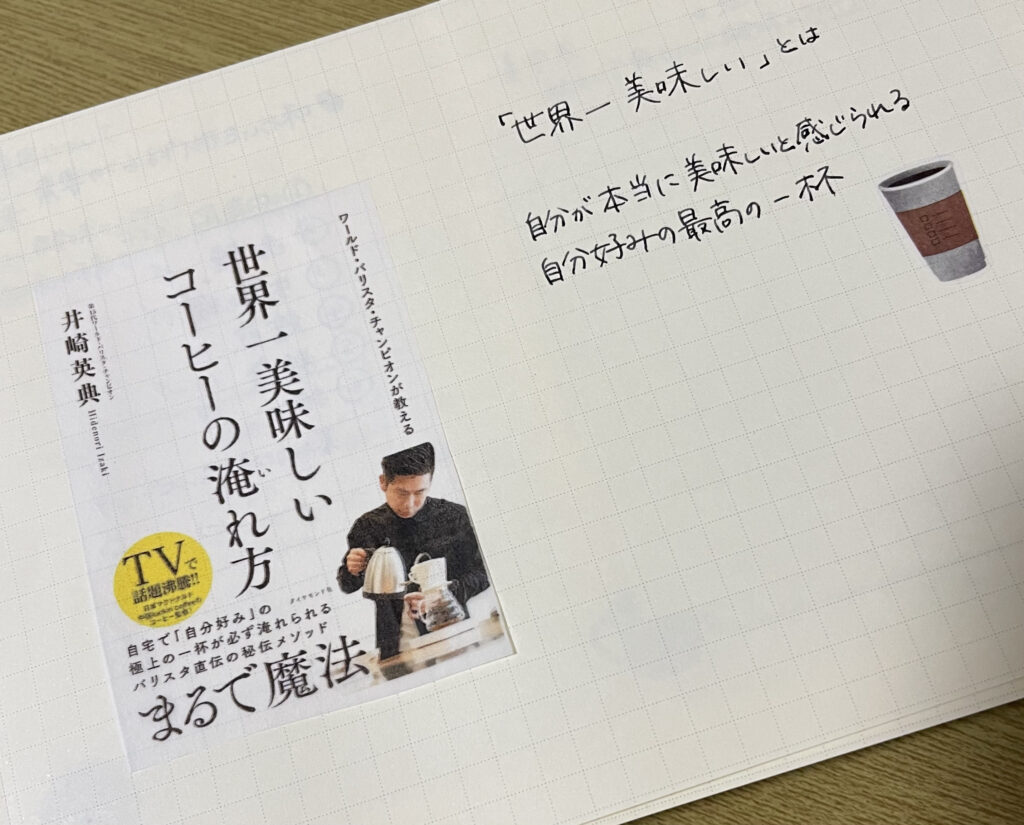 「世界一美味しい」とは
自分が本当に美味しいと感じられる
自分好みの最高の一杯
ワールド・バリスタ・チャンピオンが教える
世界一美味しい
コーヒーの淹れ方
い
第15代ワールド・バリスタ・チャンピオン
井崎英典 Hidenori Izaki
TVで
話題沸騰!!
ダイヤモンド社
自宅で「自分好み」の
極上の一杯が必ず淹れられる
バリスタ直伝の秘伝メソッド
まるで魔法